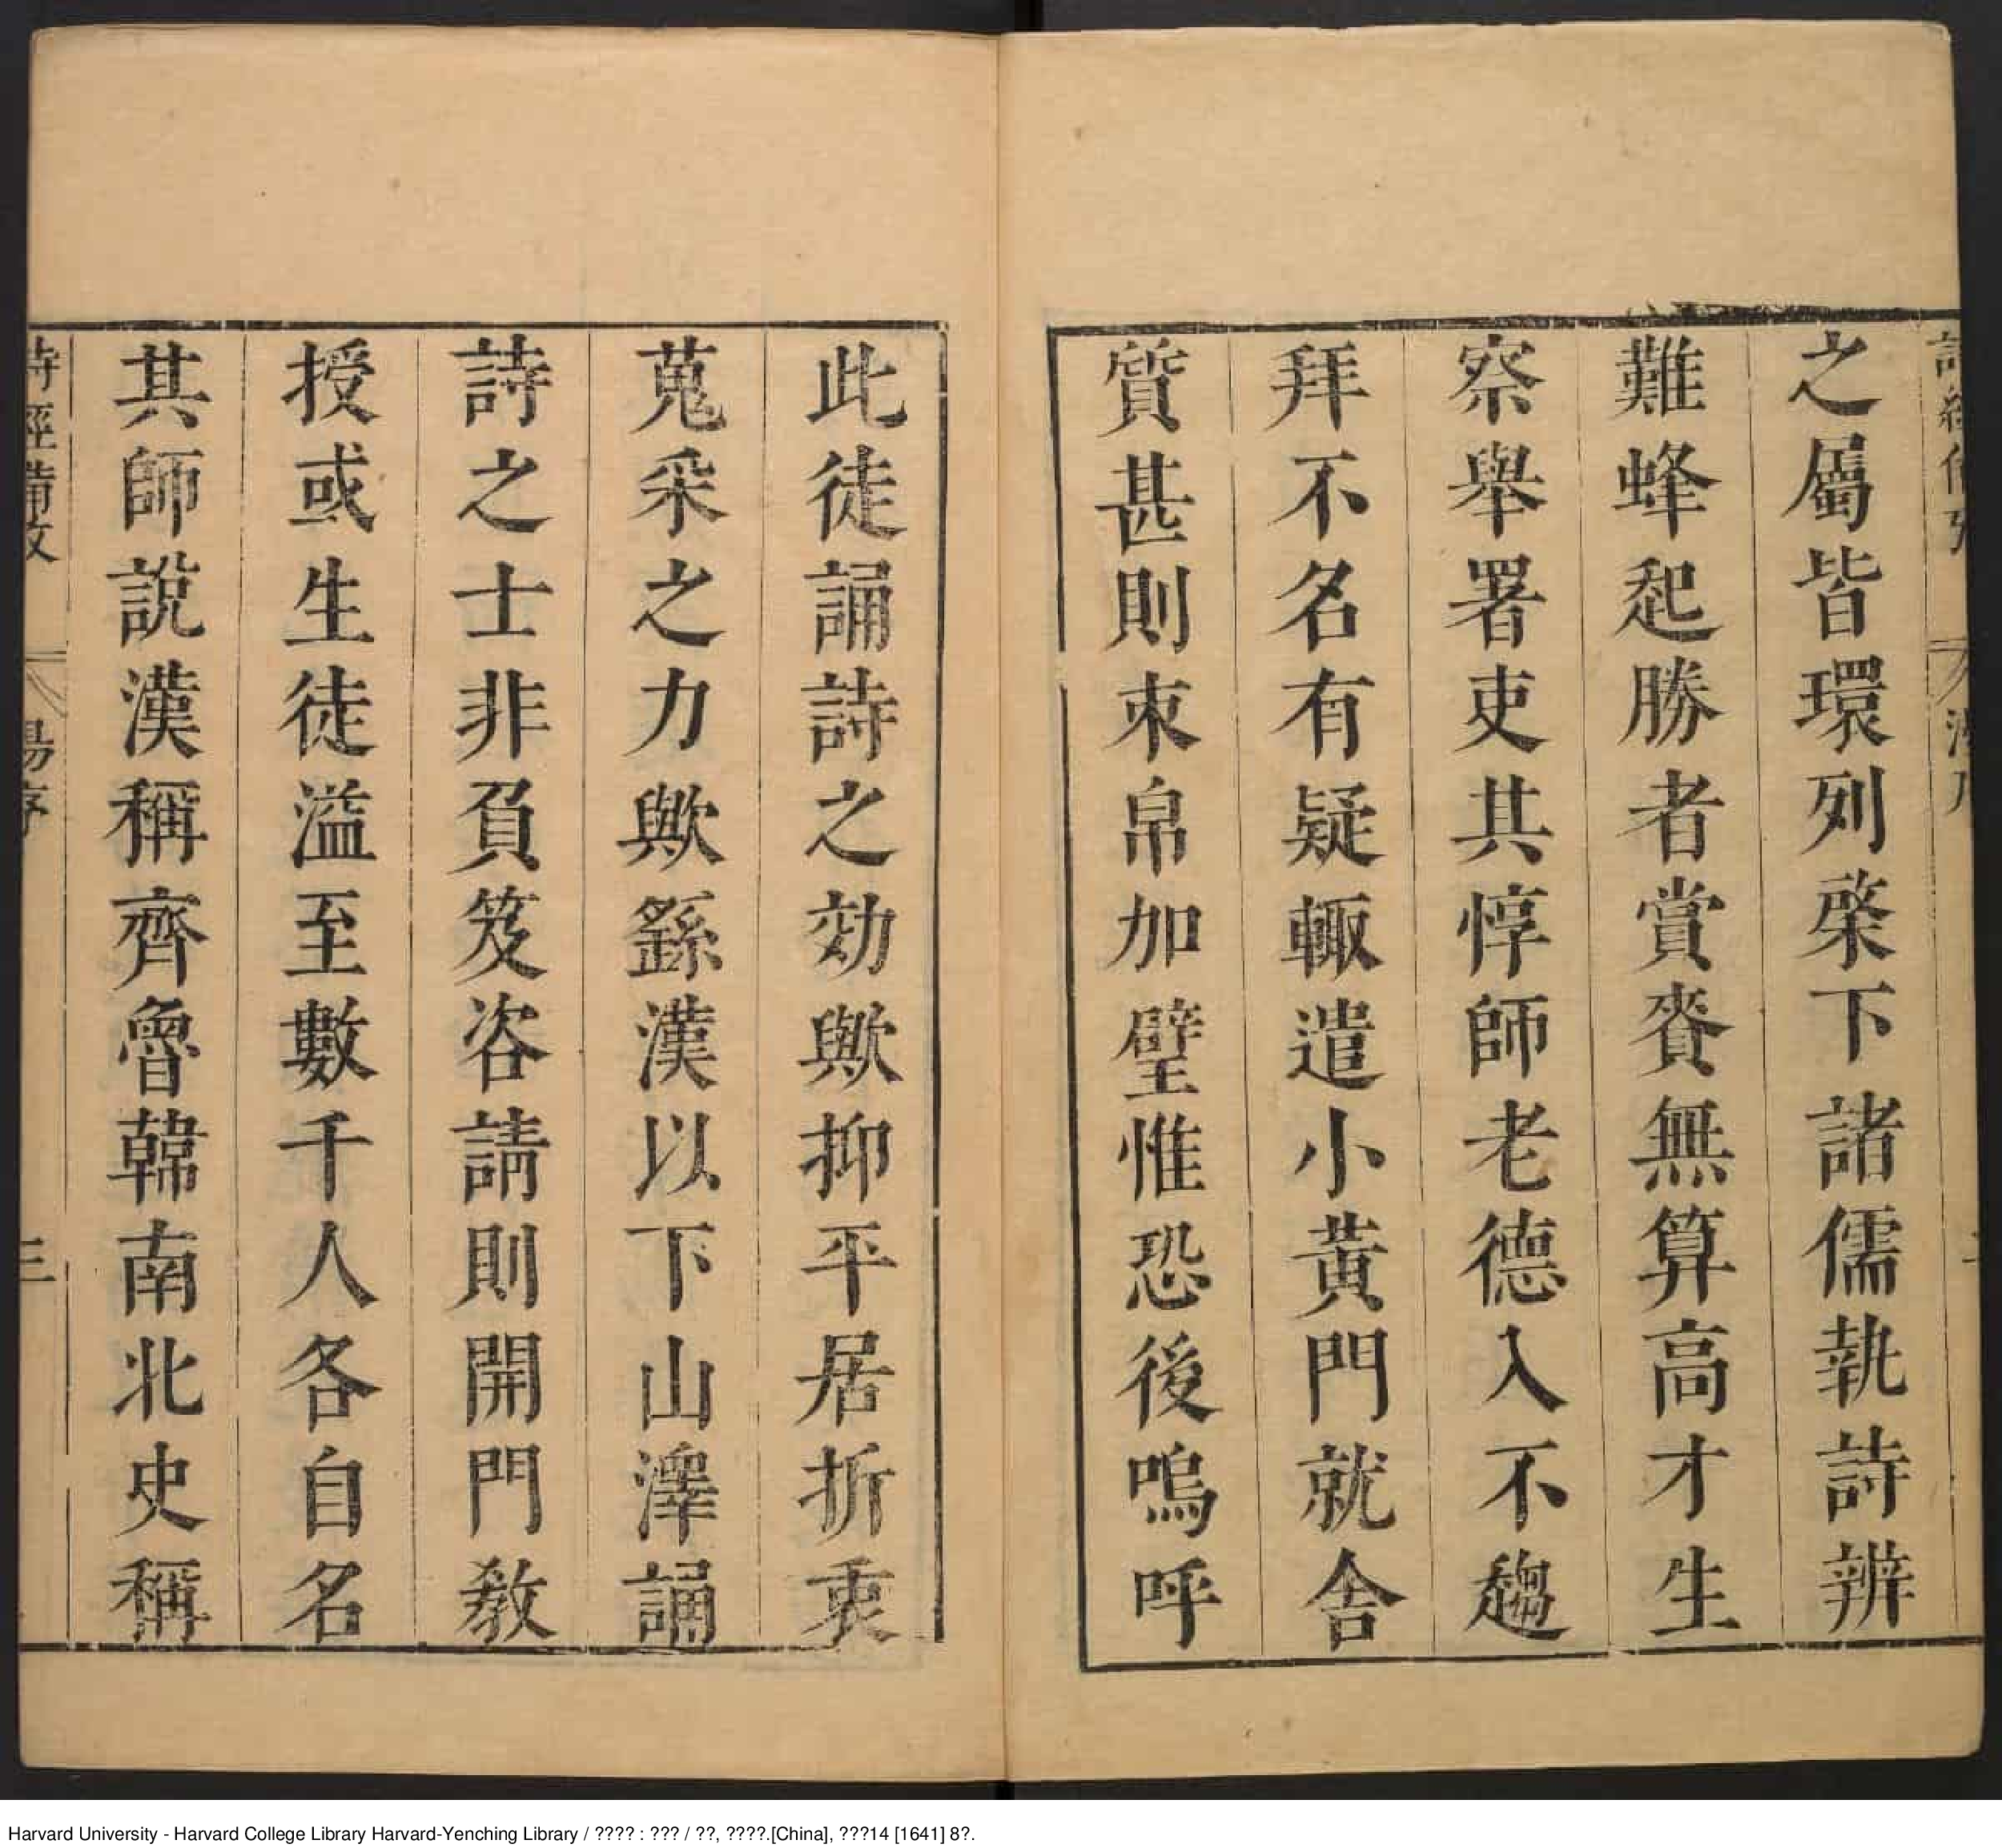 之屬皆環列棨下諸儒執詩辨
難蜂起勝者賞賚無算高才生
察舉署吏其惇師老德入不趨
拜不名有疑輙遣小黃門就舍
質甚則束帛加璧惟恐後嗚呼
此徒誦詩之効歟抑平居折衷
蒐采之力歟繇漢以下山澤誦
詩之士非負笈咨請則開門教
授或生徒溢至數千人各自名
其師說漢稱齊魯韓南北史稱
三
Harvard University - Harvard College Library Harvard-Yenching Library / ???? : ??? / ??, ????.[China], ???14 [1641] 8?.